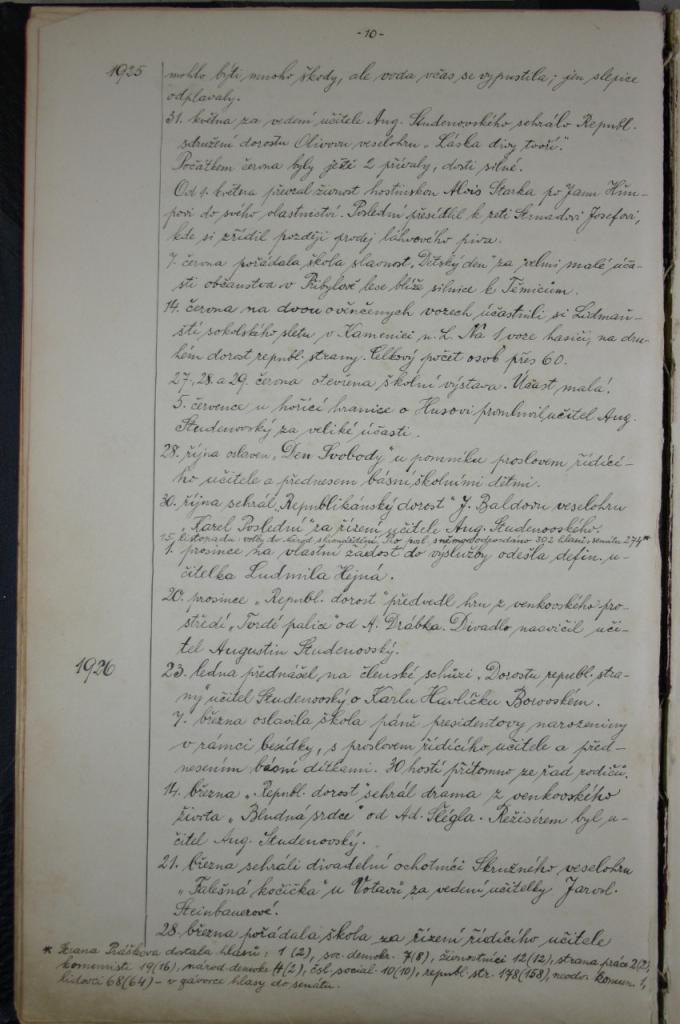 -10-
1925 mohlo býti mnoho škody, ale voda včas se vypustila; jen slepice
odplavaly.
31. května za vedení učitele Aug. Studenovského sehrálo Republ.
sdružení dorostu Olivovu veselohru „Láska divy tvoří".
Počátkem června byly ještě 2 přívaly, dosti silné.
Od 1. května převzal živnost hostinskou Alois Starka po Janu Hům-
povi do svého vlastnictví. Poslední přesídlil k zeti Strnadovi Josefovi,
kde si zřídil později prodej láhvového piva.
7. června pořádala škola slavnost „Dětský den" za velmi malé úča-
sti občanstva v Přibylově lese blíže silnice k Těmicům.
14. června na dvou ověnčených vozech účastnili si Lidmaň-
ští sokolského sletu v Kamenici n. L. Na 1 voze hasiči, na dru-
hém dorost republ. strany. Celkový počet osob přes 60.
27., 28. a 29. června otevřena školní výstava. Účast malá.
5. července u hořící hranice o Husovi promluvil učitel Aug.
Studenovský za veliké účasti.
28. října oslaven „Den Svobody" u pomníku proslovem řídící-
ho učitele a přednesem básní školními dětmi.
30. října sehrál „Republikánský dorost" J. Baldovu veselohru
„Karel Poslední" za řízení učitele Aug. Studenovského.
15. listopadu: volby do Národ. shromáždění. Do posl. sněmovny odevzdáno 392 hlasů, senátu 274*
1. prosince na vlastní žádost do výslužby odešla defin. u-
čitelka Ludmila Hejná.
20. prosince „Republ. dorost" předvedl hru z venkovského pro-
středí „Tvrdé palice" od A. Drábka. Divadlo nacvičil uči-
tel Augustin Studenovský.
1926 23. ledna přednášel na členské schůzi „Dorostu republ. stra-
ny" učitel Studenovský o Karlu Havlíčku Borovském.
7. března oslavila škola páně presidentovy narozeniny
v rámci besídky, s proslovem řídícího učitele a před-
nesením básní dítkami. 30 hostí přítomno ze řad rodičů.
14. března „Republ. dorost" sehrál drama z venkovského
života „Bludná srdce" od Ad. Šlégla. Režisérem byl u-
čitel Aug. Studenovský.
21. března sehráli divadelní ochotníci Skružného veselohru
„Falešná kočička" u Votavů za vedení učitelky Jarosl.
Steinbauerové.
28. března pořádala škola za řízení řídícího učitele
* Strana Práškova dostala hlasů: 1 (2), soc. demokr. 7(8), živnostníci 12(12), strana práce 2(2),
komunisté 19(16), národ. demokr. 4(2), čsl. social. 10(10), republ. str. 178(158), neodv. komun. 1,
lidovci 68(64) – v závorce hlasy do senátu.